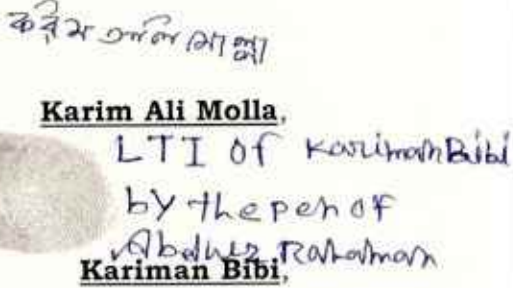 করিম আলি মোল্লা
Karim Ali Molla,
LTI of Kariman Bibi
by the pen of
Abdur Rahaman
Kariman Bibi,